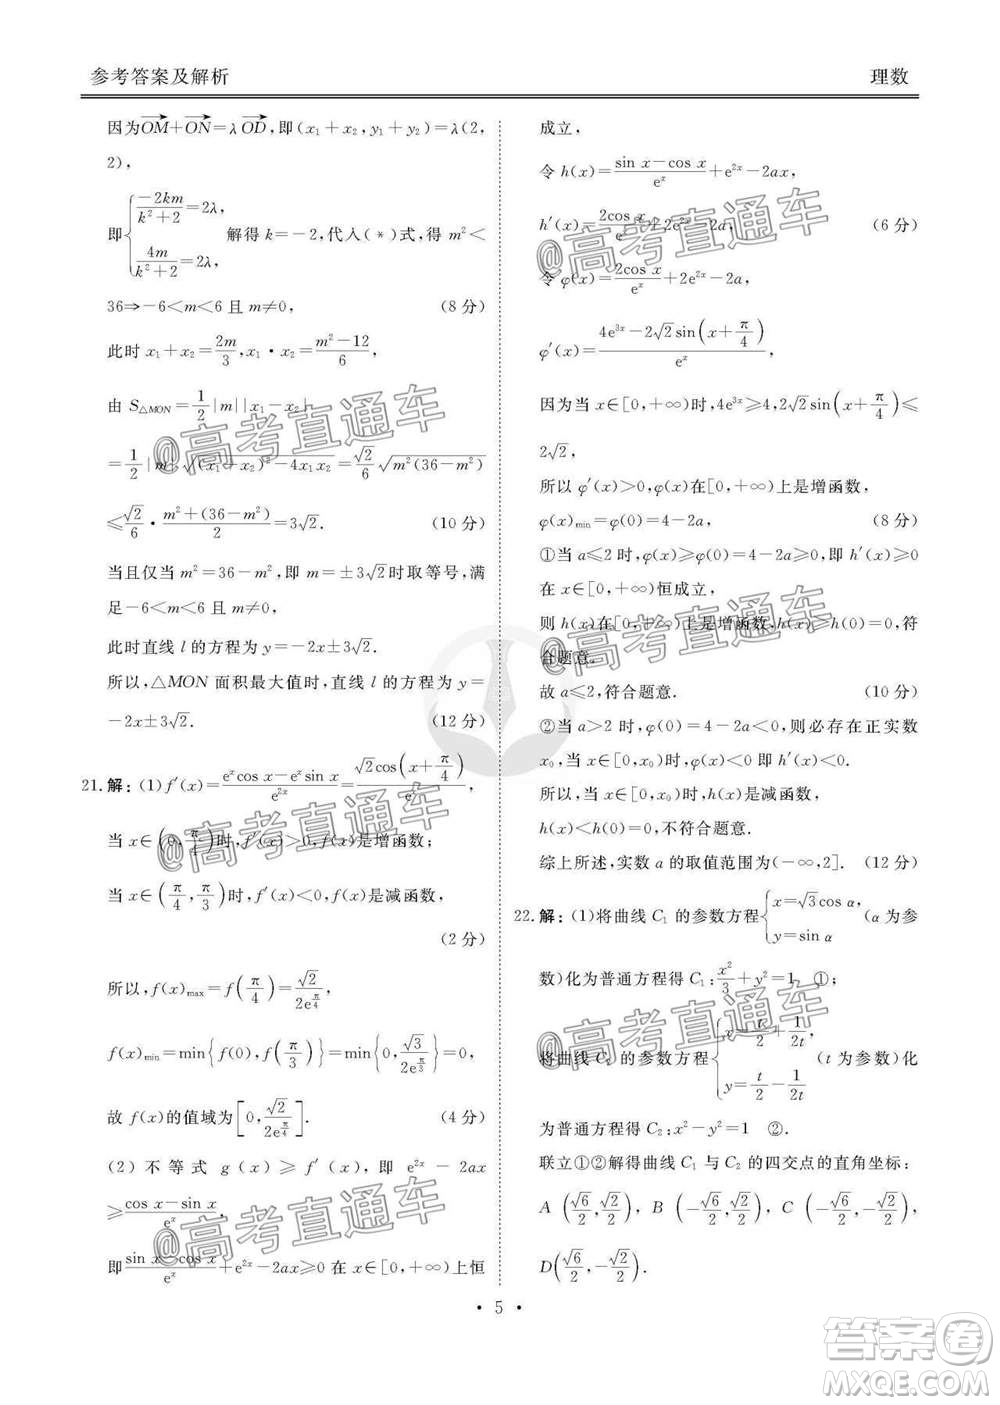 参考答案及解析
理数
因为OM+ON=λOD,即(x₁+x₂,y₁+y₂)=λ(2,
2),
即{-2km/(k²+2)=2λ, 4m/(k²+2)=2λ, 解得k=-2,代入(*)式,得m²<
36⇒-6<m<6且m≠0, (8分)
此时x₁+x₂=2m/3,x₁·x₂=(m²-12)/6,
由S△MON=1/2|m||x₁-x₂|
=1/2|m|√((x₁-x₂)²-4x₁x₂)=√2/6√(m²(36-m²))
≤√2/6·(m²+(36-m²))/2=3√2. (10分)
当且仅当m²=36-m²,即m=±3√2时取等号,满
足-6<m<6且m≠0,
此时直线l的方程为y=-2x±3√2.
所以,△MON面积最大值时,直线l的方程为y=
-2x±3√2. (12分)
21.解:(1)f′(x)=(eˣcos x-eˣsin x)/e²ˣ=√2cos(x+π/4)/eˣ,
当x∈(0,π/4)时,f′(x)>0,f(x)是增函数;
当x∈(π/4,π/3)时,f′(x)<0,f(x)是减函数,
(2分)
所以,f(x)max=f(π/4)=√2/(2e^(π/4)),
f(x)min=min{f(0),f(π/3)}=min{0,√3/(2e^(π/3))}=0,
故f(x)的值域为[0,√2/(2e^(π/4))]. (4分)
(2)不等式g(x)≥f′(x),即e²ˣ-2ax
≥(cos x-sin x)/eˣ
即(sin x-cos x)/eˣ+e²ˣ-2ax≥0在x∈[0,+∞)上恒
成立,
令h(x)=(sin x-cos x)/eˣ+e²ˣ-2ax,
h′(x)=2cos x/eˣ+2e²ˣ-2a, (6分)
令φ(x)=2cos x/eˣ+2e²ˣ-2a,
φ′(x)=(4e³ˣ-2√2sin(x+π/4))/eˣ,
因为当x∈[0,+∞)时,4e³ˣ≥4,2√2sin(x+π/4)≤
2√2,
所以φ′(x)>0,φ(x)在[0,+∞)上是增函数,
φ(x)min=φ(0)=4-2a, (8分)
①当a≤2时,φ(x)≥φ(0)=4-2a≥0,即h′(x)≥0
在x∈[0,+∞)恒成立,
则h(x)在[0,+∞)上是增函数,h(x)≥h(0)=0,符
合题意.
故a≤2,符合题意. (10分)
②当a>2时,φ(0)=4-2a<0,则必存在正实数
x₀,当x∈(0,x₀)时,φ(x)<0即h′(x)<0.
所以,当x∈(0,x₀)时,h(x)是减函数,
h(x)<h(0)=0,不符合题意.
综上所述,实数a的取值范围为(-∞,2]. (12分)
22.解:(1)将曲线C₁的参数方程{x=√3cos α, y=sin α (α为参
数)化为普通方程得C₁:x²/3+y²=1 ①;
将曲线C₂的参数方程{x=t/2+1/2t, y=t/2-1/2t (t为参数)化
为普通方程得C₂:x²-y²=1 ②.
联立①②解得曲线C₁与C₂的四交点的直角坐标:
A(√6/2,√2/2),B(-√6/2,√2/2),C(-√6/2,√2/2),
D(√6/2,√2/2).
• 5 •
@高考直通车
@高考直通车
@高考直通车
@高考直通车
@高考直通车
@高考直通车
@高考直通车
答案卷
MXQE.COM